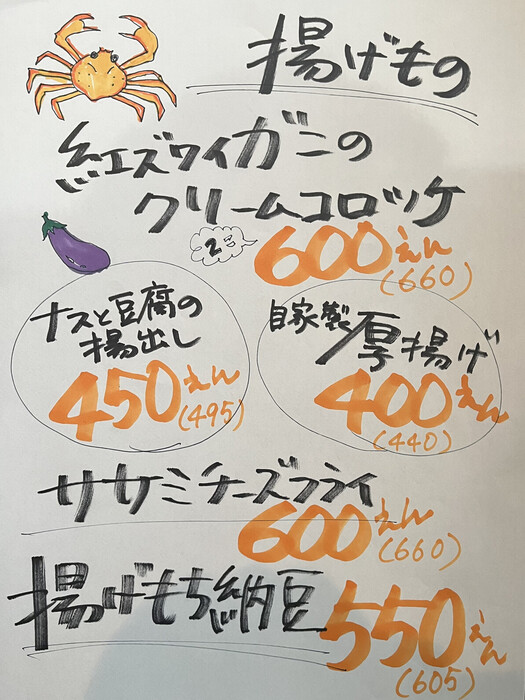 揚げもの
紅ズワイガニの
クリームコロッケ
2コ
600えん
(660)
ナスと豆腐の
揚出し
450えん
(495)
自家製厚揚げ
400えん
(440)
ササミチーズフライ
600えん
(660)
揚げもち納豆
550えん
(605)